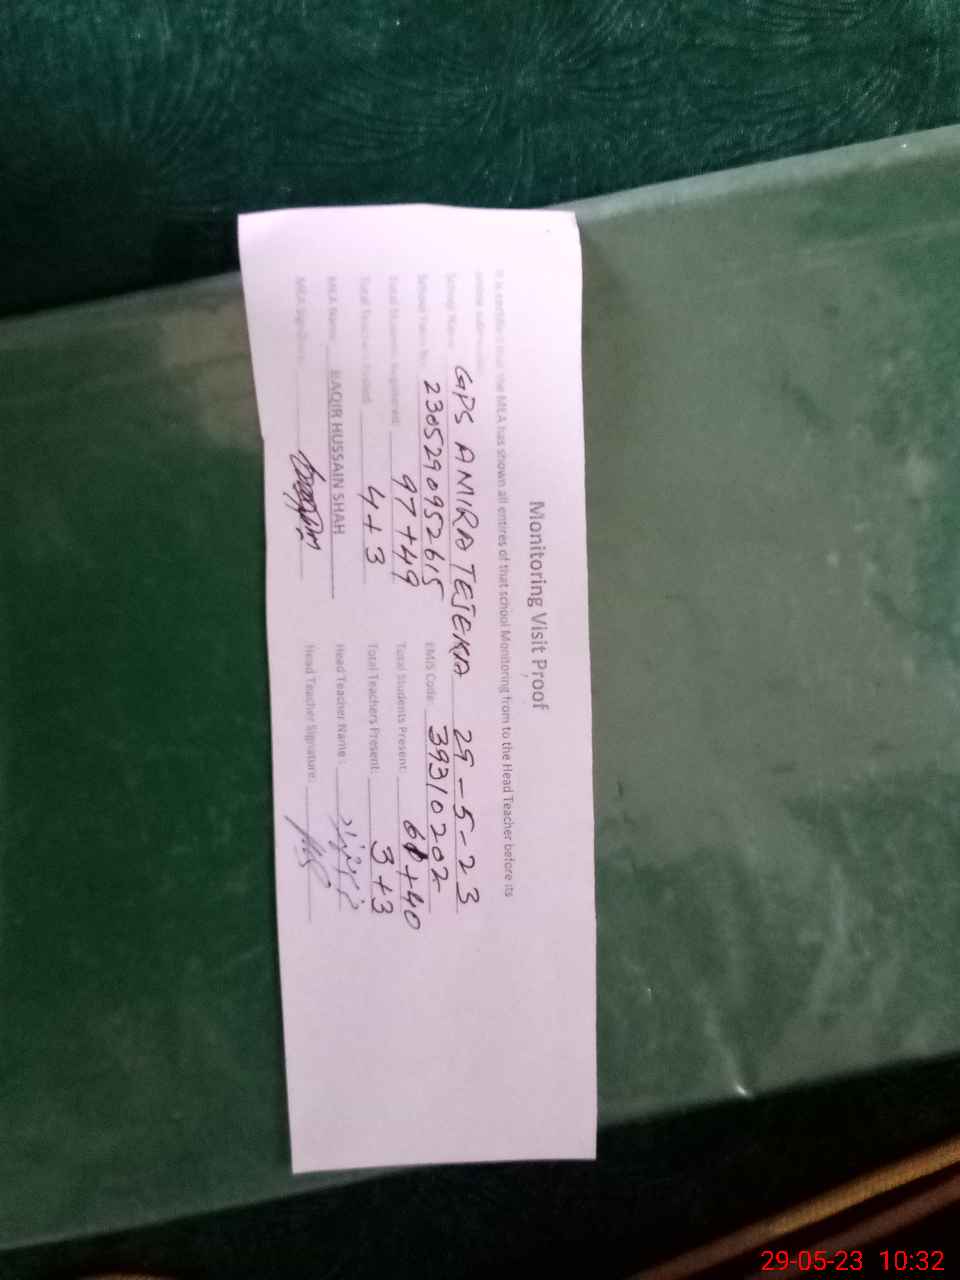 Monitoring Visit Proof
It is certified that the MEA has shown all entires of that school Monitoring from to the Head Teacher before its
online submission.
School Name: GPS AMIRA TEJEKA 29-5-23
School Form No: 2305290952615 EMIS Code: 39310202
Total Students Registered: 97+49 Total Students Present: 61+40
Total Teachers Posted: 4+3 Total Teachers Present: 3+3
MEA Name: BAQIR HUSSAIN SHAH Head Teacher Name:
MEA Signature: Head Teacher Signature:
29-05-23 10:32